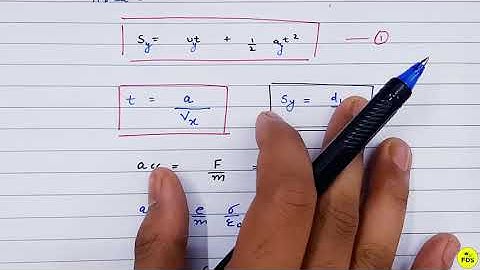 Sy = uyt + 1/2 ayt² — ①
t = a/Vx
Sy = d
acc = F/m =
a e/m σ/ε₀
FDS